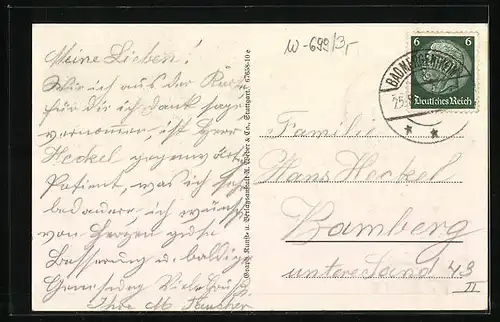 Meine Lieben!
Wie ich aus der Karte
für die ich dank sage
vernommen ist Herr
Heckel gegenwärtig
Patient, was ich sehr
bedauere ich wünsche
von Herzen gute
Besserung u. baldige
Genesung Viele Grüße
Ihre M.
Graph. Kunst- u. Verlagsanstalt A. Weber & Co., Stuttgart. 67658-10 e
W-699/3,-
6 6
Deutsches Reich
BAD MERGENTHEIM
25.
Familie
Hans Heckel
Bamberg
untere Sand 43
II